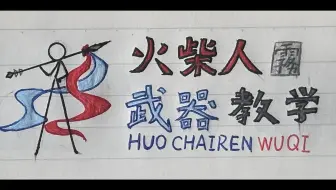 火柴人
武器教学
HUO CHAIREN WUQI